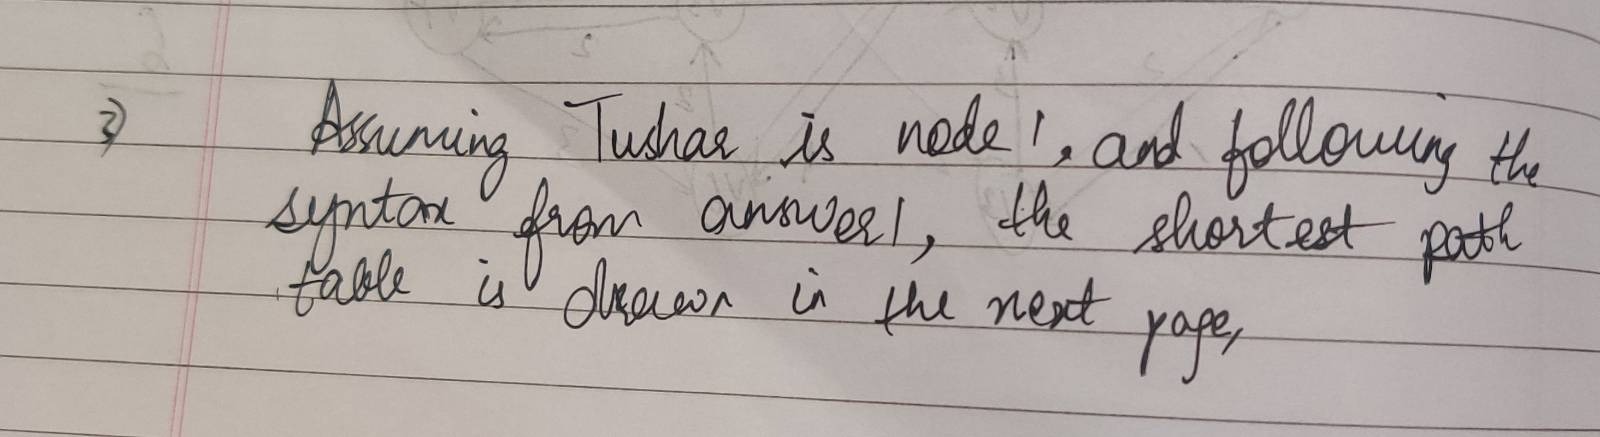 3) Assuming Tushar is node 1, and following the
syntax from answer 1, the shortest path
table is drawn in the next page,